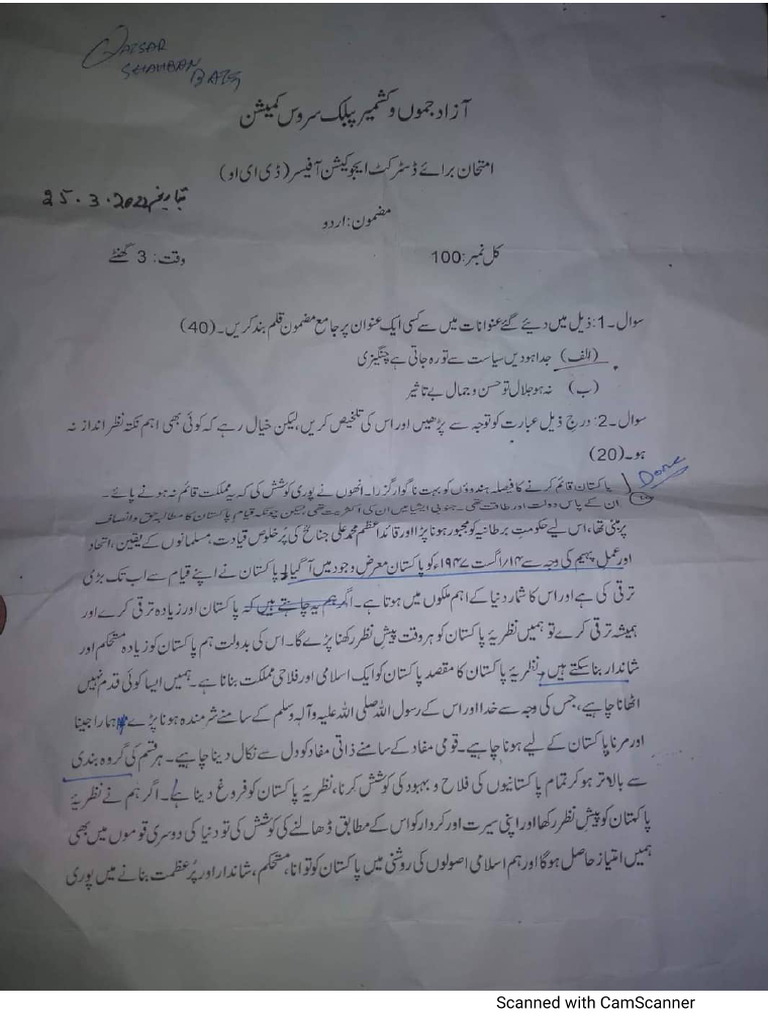 QAISAR
SHAHBAN
BAIG
آزاد جموں و کشمیر پبلک سروس کمیشن
امتحان برائے ڈسٹرکٹ ایجوکیشن آفیسر (ڈی ای او)
بتاریخ 25.3.2022
مضمون: اردو
کل نمبر: 100
وقت: 3 گھنٹے
سوال ۔1: ذیل میں دیئے گئے عنوانات میں سے کسی ایک عنوان پر جامع مضمون قلم بند کریں۔ (40)
(الف) جدا ہو دیں سیاست سے تو رہ جاتی ہے چنگیزی
(ب) نہ ہو جلال تو حسن و جمال بے تاثیر
سوال ۔2: درج ذیل عبارت کو توجہ سے پڑھیں اور اس کی تلخیص کریں، لیکن خیال رہے کہ کوئی بھی اہم نکتہ نظر انداز نہ
ہو۔ (20)
Done
پاکستان قائم کرنے کا فیصلہ ہندوؤں کو بہت ناگوار گزرا۔ انھوں نے پوری کوشش کی کہ یہ مملکت قائم نہ ہونے پائے۔
ان کے پاس دولت اور طاقت تھی۔ جنوبی ایشیا میں ان کی اکثریت تھی لیکن چونکہ قیامِ پاکستان کا مطالبہ حق و انصاف
پر مبنی تھا، اس لیے حکومتِ برطانیہ کو مجبور ہونا پڑا اور قائد اعظم محمد علی جناحؒ کی پُرخلوص قیادت، مسلمانوں کے یقین، اتحاد
اور عملِ پیہم کی وجہ سے ۱۴/اگست ۱۹۴۷ء کو پاکستان معرضِ وجود میں آ گیا۔ پاکستان نے اپنے قیام سے اب تک بڑی
ترقی کی ہے اور اس کا شمار دنیا کے اہم ملکوں میں ہوتا ہے۔ اگر ہم یہ چاہتے ہیں کہ پاکستان اور زیادہ ترقی کرے اور
ہمیشہ ترقی کرے تو ہمیں نظریۂ پاکستان کو ہر وقت پیشِ نظر رکھنا پڑے گا۔ اس کی بدولت ہم پاکستان کو زیادہ مستحکم اور
شاندار بنا سکتے ہیں۔ نظریۂ پاکستان کا مقصد پاکستان کو ایک اسلامی اور فلاحی مملکت بنانا ہے۔ ہمیں ایسا کوئی قدم نہیں
اٹھانا چاہیے، جس کی وجہ سے خدا اور اس کے رسول اللہ صلی اللہ علیہ وآلہ وسلم کے سامنے شرمندہ ہونا پڑے۔ ہمارا جینا
اور مرنا پاکستان کے لیے ہونا چاہیے۔ قومی مفاد کے سامنے ذاتی مفاد کو دل سے نکال دینا چاہیے۔ ہر قسم کی گروہ بندی
سے بالاتر ہو کر تمام پاکستانیوں کی فلاح و بہبود کی کوشش کرنا، نظریۂ پاکستان کو فروغ دینا ہے۔ اگر ہم نے نظریۂ
پاکستان کو پیشِ نظر رکھا اور اپنی سیرت اور کردار کو اس کے مطابق ڈھالنے کی کوشش کی تو دنیا کی دوسری قوموں میں بھی
ہمیں امتیاز حاصل ہوگا اور ہم اسلامی اصولوں کی روشنی میں پاکستان کو توانا، مستحکم، شاندار اور پُرعظمت بنانے میں پوری
Scanned with CamScanner